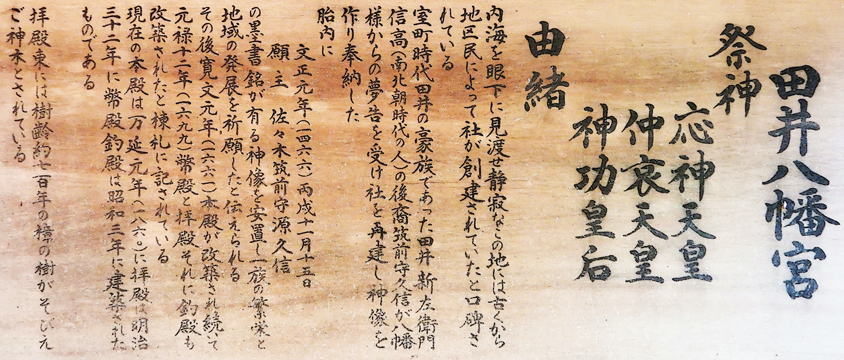 田井八幡宮
祭神
応神天皇
仲哀天皇
神功皇后
由緒
内海を眼下に見渡せ静寂なこの地には古くから
地区民によって社が創建されていたと口碑さ
れている
室町時代田井の豪族であった田井新左衛門
信高(南北朝時代の人)の後裔筑前守久信が八幡
様からの夢告を受け社を再建し神像を
作り奉納した
胎内に
文正元年(一四六六)丙戌十一月十五日
願主 佐々木筑前守源久信
の墨書銘が有る神像を安置し一族の繁栄と
地域の発展を祈願したと伝えられる
その後寛文元年(一六六一)本殿が改築され続いて
元禄十二年(一六九九)幣殿と拝殿それに釣殿も
改築されたと棟札に記されている
現在の本殿は万延元年(一八六〇)に拝殿は明治
三十二年に幣殿釣殿は昭和三年に建築された
ものである
拝殿東には樹齢約七百年の樟の樹がそびえ
ご神木とされている